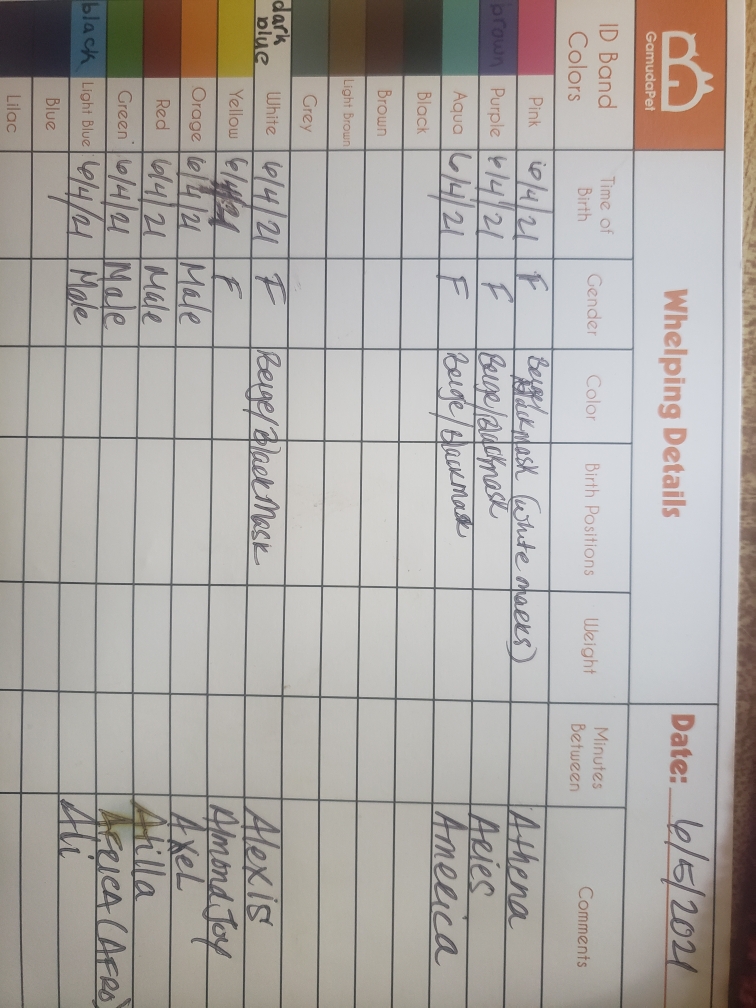 GamudaPet
Whelping Details
Date: 6/5/2021
ID Band Colors
Time of Birth
Gender
Color
Birth Positions
Weight
Minutes Between
Comments
Pink 6/4/21 F Beige/ Blackmask (white marks) Athena
brown Purple 6/4/21 F Beige/Blackmask Aries
Aqua 6/4/21 F Beige/Blackmask America
Black
Brown
Light Brown
Grey
dark blue White 6/4/21 F Beige/BlackMask Alexis
Yellow 6/4/21 F Almond Joy
Orage 6/4/21 Male Axel
Red 6/4/21 Male Atilla
Green 6/4/21 Male AFRICA (AFRO)
black Light Blue 6/4/21 Male Ali
Blue
Lilac